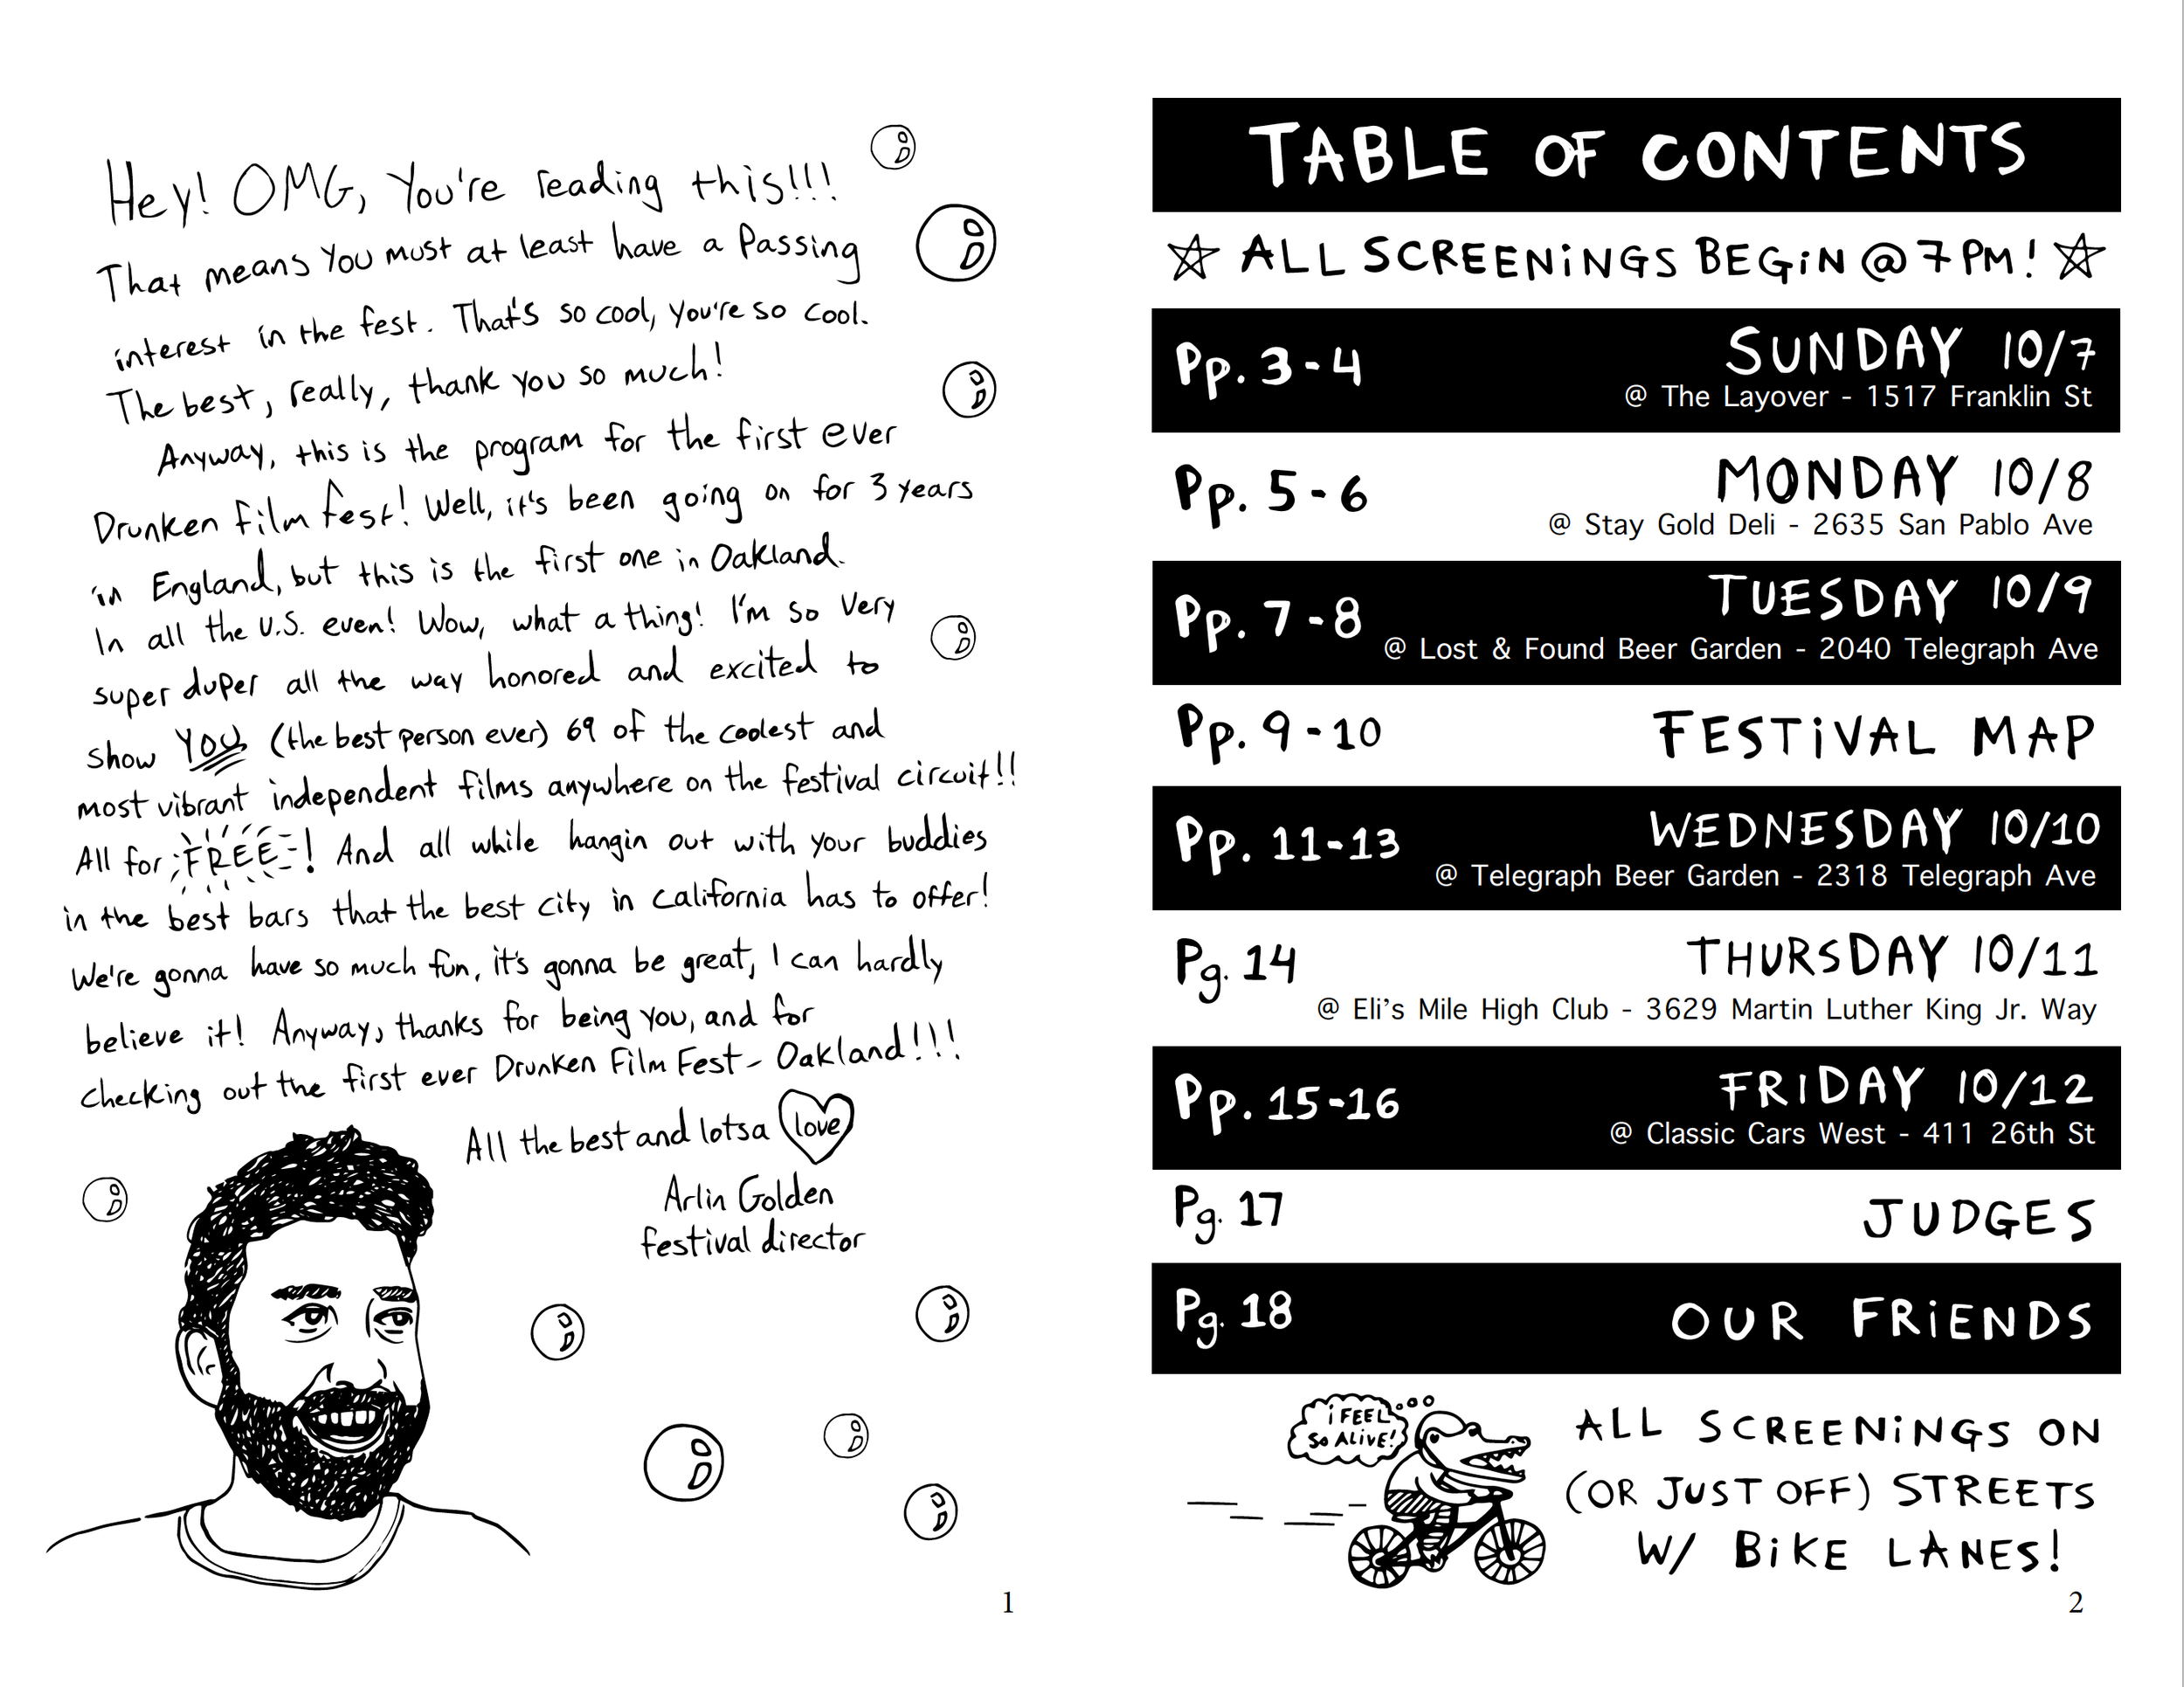 Hey! OMG, You're reading this!!!
That means You must at least have a Passing
interest in the fest. That's so cool, you're so cool.
The best, really, thank you so much!
Anyway, this is the program for the first ever
Drunken Film Fest! Well, it's been going on for 3 years
in England, but this is the first one in Oakland.
In all the U.S. even! Wow, what a thing! I'm so very
super duper all the way honored and excited to
show YOU (the best person ever) 69 of the coolest and
most vibrant independent films anywhere on the festival circuit!!
All for FREE! And all while hangin out with your buddies
in the best bars that the best city in California has to offer!
We're gonna have so much fun, it's gonna be great, I can hardly
believe it! Anyway, thanks for being you, and for
checking out the first ever Drunken Film Fest- Oakland!!!
All the best and lotsa love
Arlin Golden
festival director
1
TABLE OF CONTENTS
ALL SCREENiNGS BEGiN @ 7 PM!
Pp. 3-4 SUNDAY 10/7
@ The Layover - 1517 Franklin St
Pp. 5-6 MONDAY 10/8
@ Stay Gold Deli - 2635 San Pablo Ave
Pp. 7-8 TUESDAY 10/9
@ Lost & Found Beer Garden - 2040 Telegraph Ave
Pp. 9-10 FESTiVAL MAP
Pp. 11-13 WEDNESDAY 10/10
@ Telegraph Beer Garden - 2318 Telegraph Ave
Pg. 14 THURSDAY 10/11
@ Eli's Mile High Club - 3629 Martin Luther King Jr. Way
Pp. 15-16 FRIDAY 10/12
@ Classic Cars West - 411 26th St
Pg. 17 JUDGES
Pg. 18 OUR FRiENDS
i FEEL
SO ALiVE!
ALL SCREENiNGS ON
(OR JUST OFF) STREETS
W/ BiKE LANES!
2